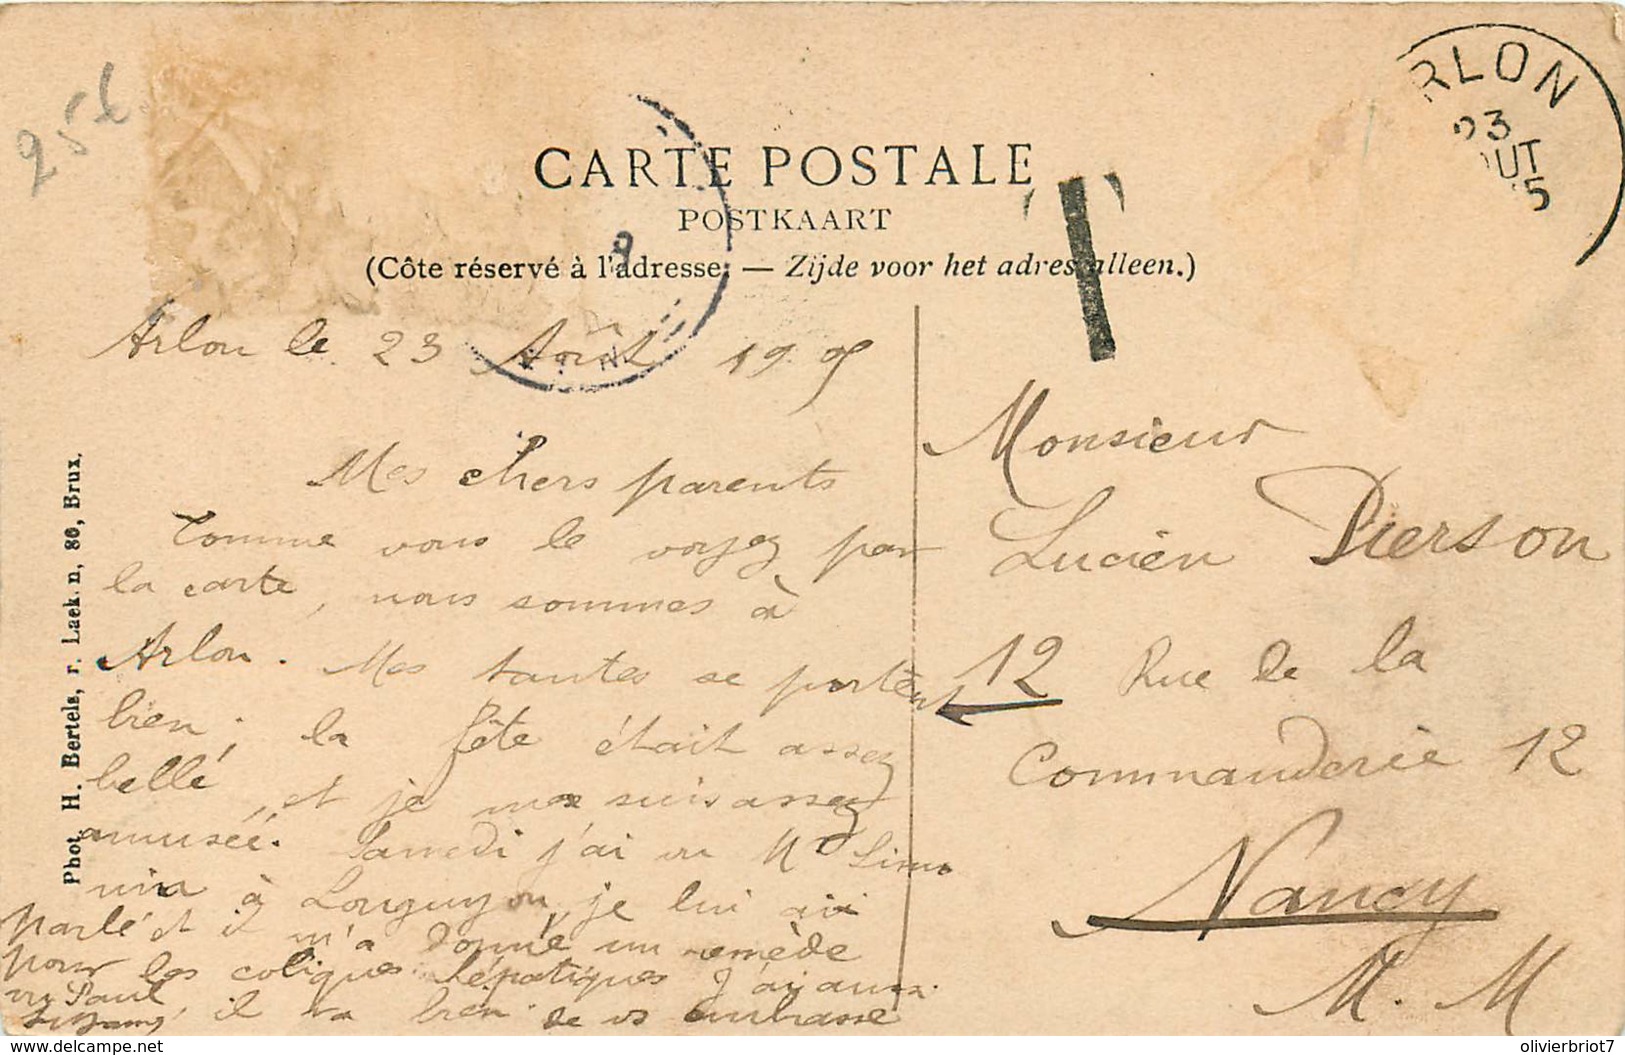 25
CARTE POSTALE
POSTKAART
(Côte réservé à l'adresse. — Zijde voor het adres alleen.)
RLON
23
OUT
5
T
Arlon le 23 Août 1905
Mes chers parents
Comme vous le voyez par
la carte, nous sommes à
Arlon. Mes tantes se portent
bien, la fête était assez
belle, et je me suis assez
amusée. Samedi j'ai vu Mr
à Longuyon je lui ai
parlé et il m'a donné un remède
pour les coliques hépatiques j'ai aussi
vu Paul
il va bien. Je vs embrasse
Monsieur
Lucien Pierson
12 Rue de la
Commanderie 12
Nancy
M. M
Phot. H. Bertels, r. Laek.n, 86, Brux.
www.delcampe.net
olivierbriot7